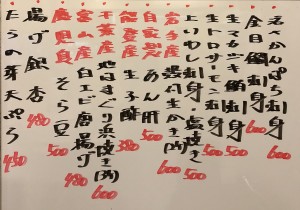 えんがんぱち刺身 600
金目鯛刺身 600
生マカジキ刺身 500
生トロサーモン刺身 500
上いわし刺身 塩焼き 500
岩手産 殻付生かき(1ヶ) 600
自家製 あん肝 500
能登産 生もずく酢 380
千葉産 地はまぐり浜焼き(2ヶ) 600
富山産 白エビ唐揚げ 480
鹿児島産 そら豆 500
揚げ銀杏 480
たらの芽天ぷら 450